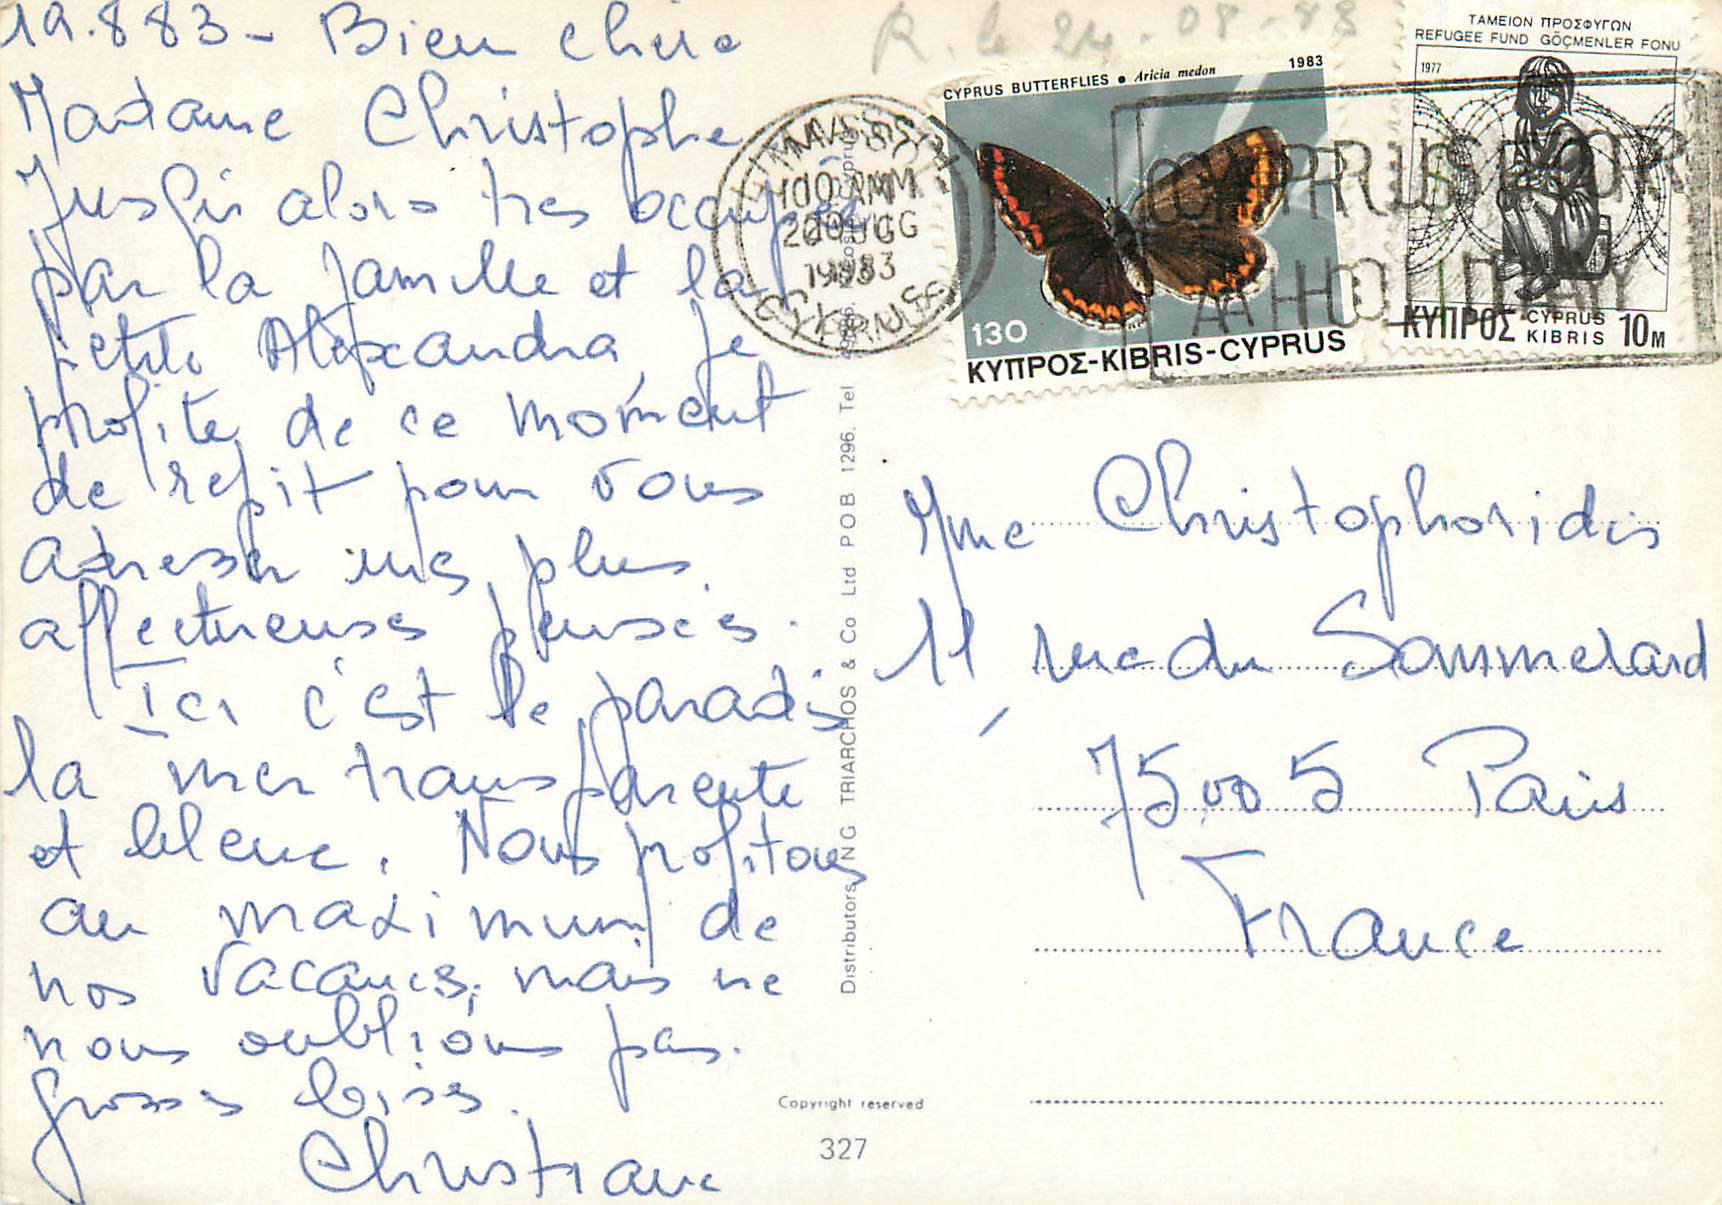 19.8 83 - Bien chère
Madame Christophe
Jusqu'ici alors très occupée
par la famille et la
petite Alexandra, je
profite de ce moment
de répit pour vous
adresser mes plus
affectueuses pensées.
Ici c'est le paradis
la mer transparente
et bleue. Nous profitons
au maximum de
nos vacances, mais ne
nous oublions pas.
Grosses bises.
Christiane
R. le 24-08-83
CYPRUS BUTTERFLIES • Aricia medon 1983
130
ΚΥΠΡΟΣ-KIBRIS-CYPRUS
ΤΑΜΕΙΟΝ ΠΡΟΣΦΥΓΩΝ
REFUGEE FUND GÖÇMENLER FONU
1977
ΚΥΠΡΟΣ CYPRUS KIBRIS 10M
LIMASSOL
AM
20 AUG
1983
CYPRUS
CYPRUS FOR
A HOLIDAY
Mme Christophoridis
11 rue du Sommerard
75005 Paris
France
Distributors NG TRIARCHOS & Co Ltd POB 1296, Tel
Copyright reserved
327